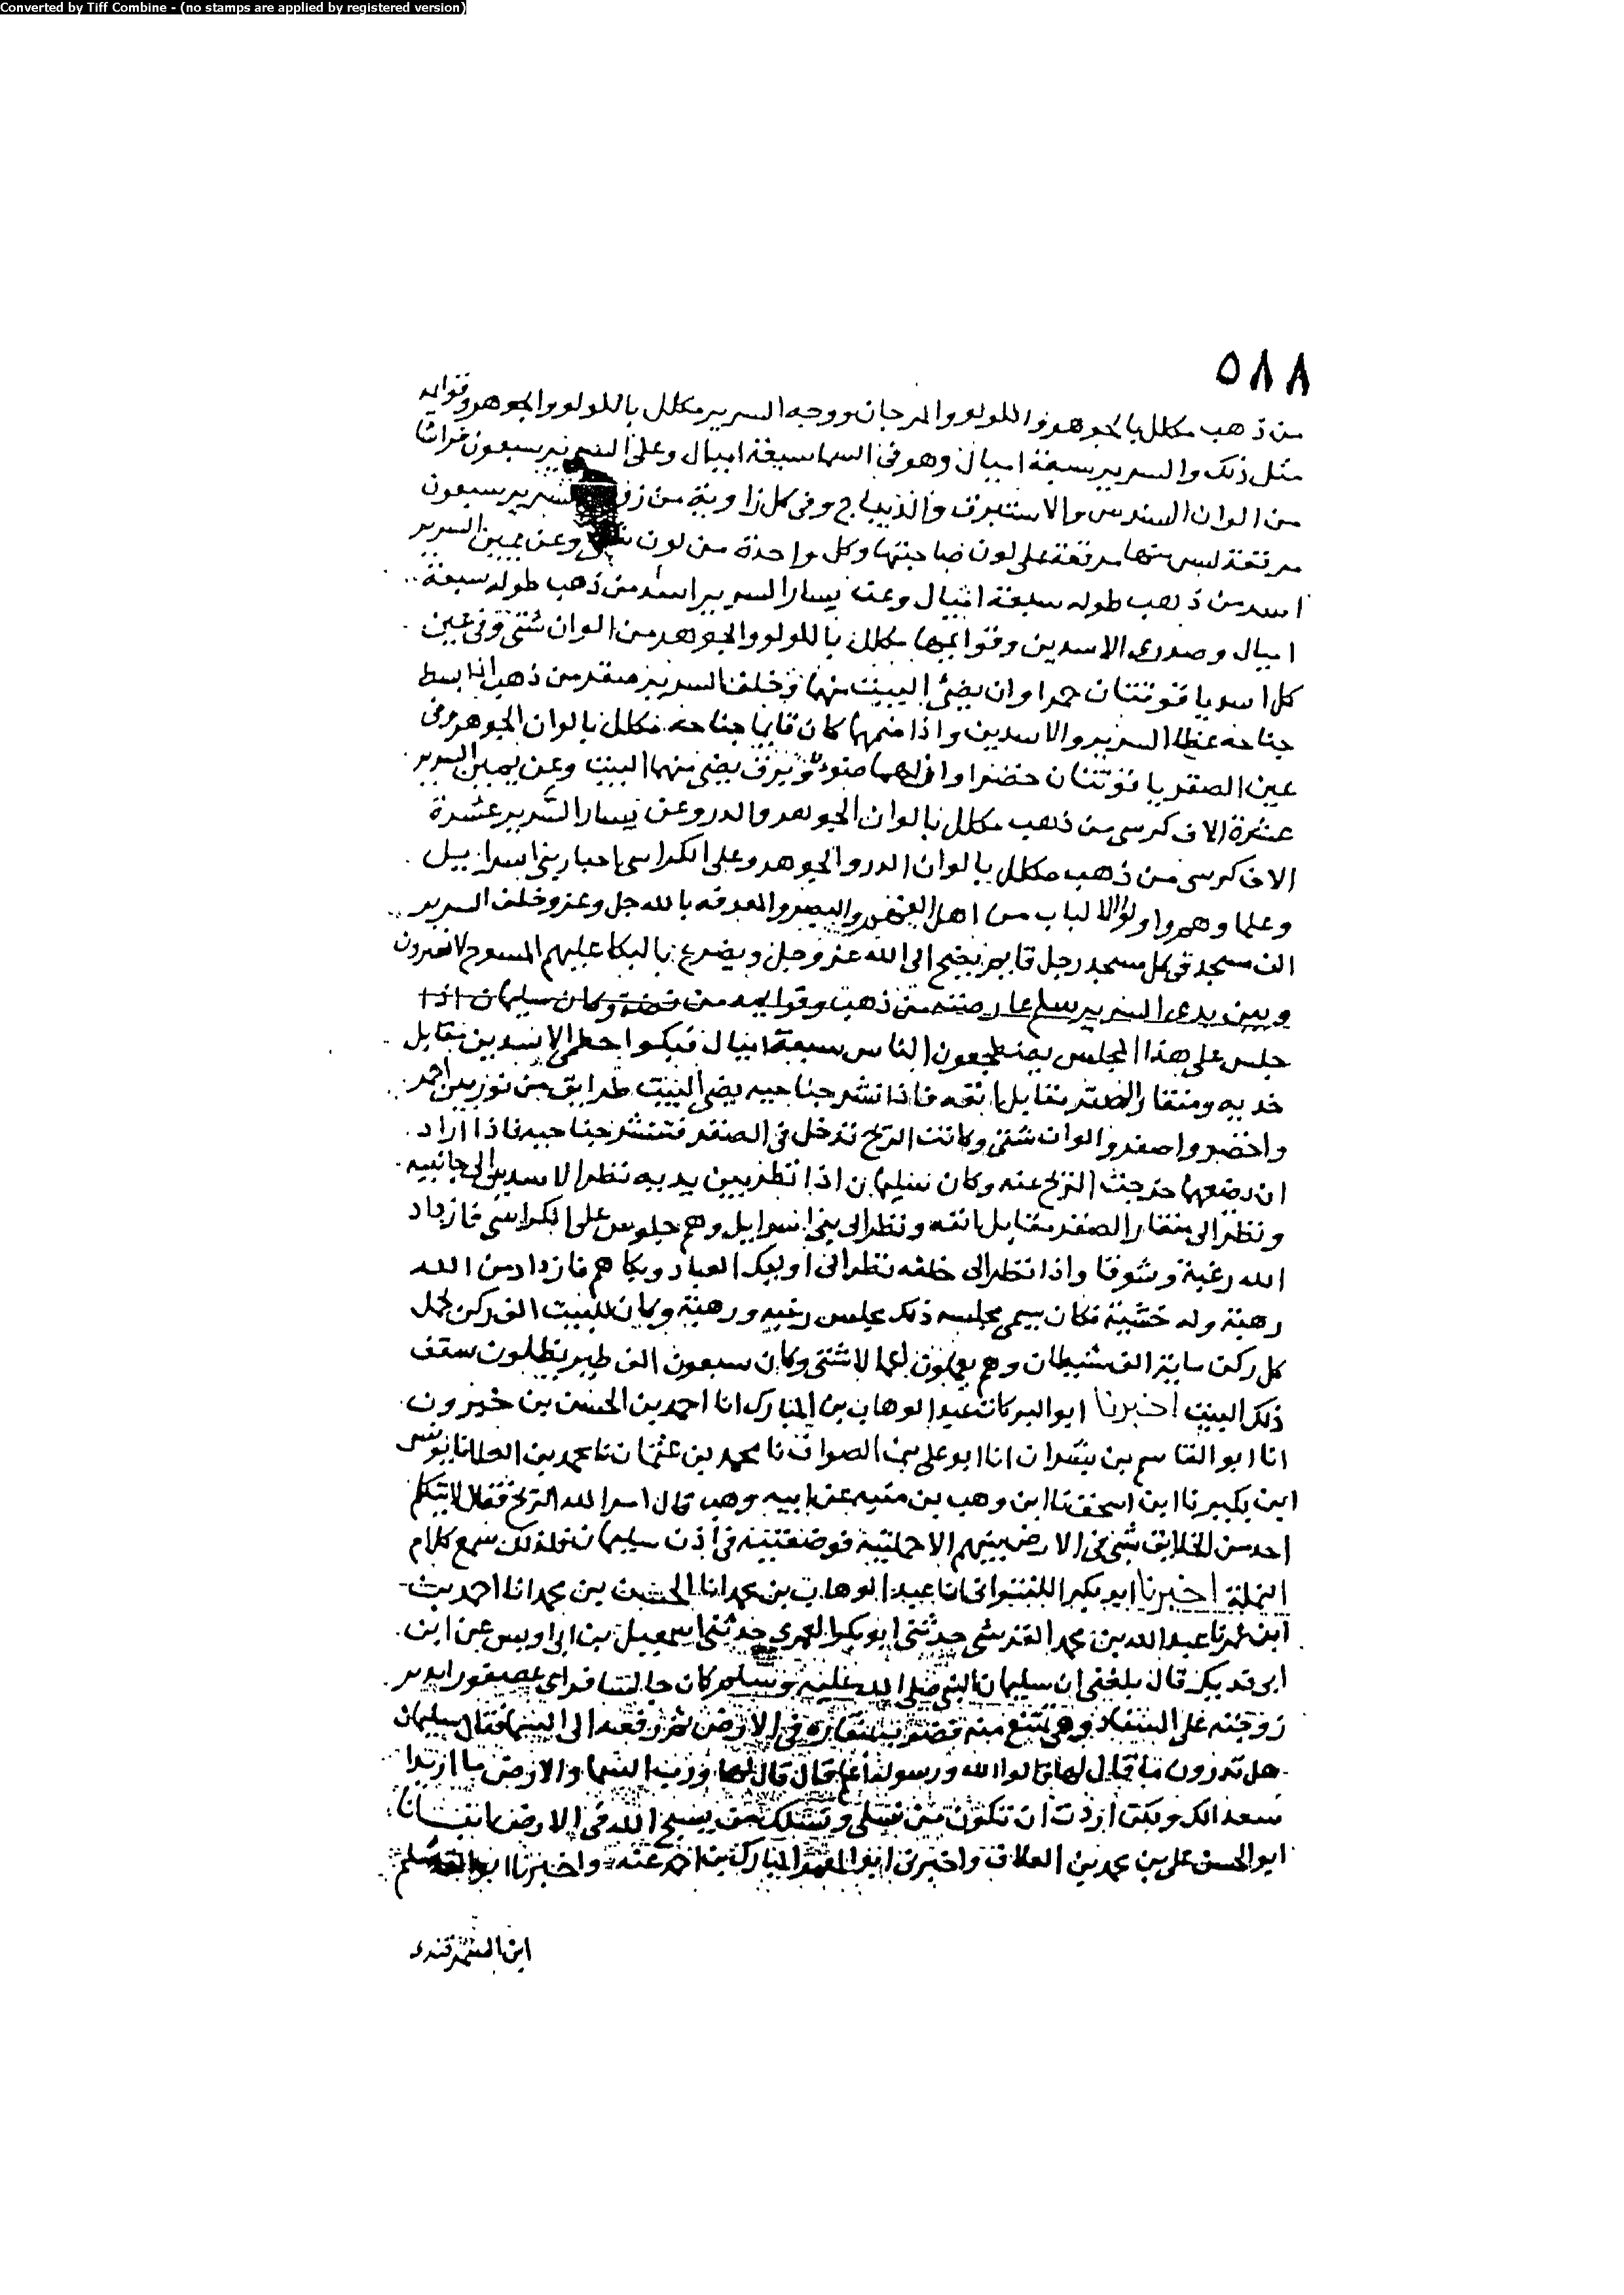 Converted by Tiff Combine - (no stamps are applied by registered version)
٥٨٨
من ذهب مكلل بالجوهر واللولو والمرجان ووجه السرير مكلل باللولو والجوهر وقوايمه
مثل ذلك والسرير سبعة اميال وهو في السما سبعة اميال وعلى السرير سبعون فراشا
من الوان السندس والاستبرق والديباج وفي كل زاوية من السرير سبعون
مرفقة ليس منها مرفقة على لون صاحبتها وكل واحدة من لون وعن يمين السرير
اسد من ذهب طوله سبعة اميال وعن يسار السرير اسد من ذهب طوله سبعة
اميال وصدرى الاسدين وقوايمهما مكلل باللولو والجوهر من الوان شتى وفي عين
كل اسد ياقوتتان حمراوان يضئ البيت منها وخلف السرير صقر من ذهب اذا بسط
جناحه غطا السرير والاسدين واذا ضمهما كان قايما جناحه مكلل بالوان الجوهر وفي
عين الصقر ياقوتتان خضراوان لهما ضو يبرق يضئ منهما البيت وعن يمين السرير
عشرة الاف كرسي من ذهب مكلل بالوان الجوهر والدر وعن يسار السرير عشرة
الاف كرسي من ذهب مكلل بالوان الدر والجوهر وعلى الكراسي احبار بني اسراييل
وعلماوهم واولوا الالباب من اهل والبصر والمعرفة بالله جل وعز وخلف السرير
الف مسجد في كل مسجد رجل قايم الى الله عز وجل ويضرع بالبكا عليهم المسوح لا يفترون
وبين يدى السرير سلم عارضته من ذهب وقوايمه من فضة وكان سليمان اذا
جلس على هذا المجلس الناس سبعة اميال الاسدين مقابل
خديه ومنقار الصقر مقابل انفه فاذا نشر جناحيه يضئ البيت طرايق من نور بين احمر
واخضر واصفر والوان شتى وكانت الريح تدخل في الصقر فتنشر جناحيه فاذا اراد
ان يضعهما خرجت الريح عنه وكان سليمان اذا نظر بين يديه نظر الاسدين الى جانبيه
ونظر الى منقار الصقر مقابل انفه ونظر الى بني اسرايل وهم جلوس على الكراسي فازداد
الله رغبة وشوقا واذا نظر الى خلفه نظر الى اوليك العباد وبكاهم فازداد من الله
رهبة وله خشية فكان يسمى مجلسه ذلك مجلس رغبه ورهبة وكان للبيت الف ركن يحمل
كل ركن ماية الف شيطان وهم يعملون اعمالا شتى وكان سبعون الف طير يظلون سقف
ذلك البيت اخبرنا ابو البركات عبد الوهاب بن المبارك انا احمد بن الحسن بن خيرون
انا ابو القاسم بن بشران انا ابو علي بن الصواف نا محمد بن عثمان نا محمد بن العلا نا يونس
ابن بكير نا ابن اسحق نا ابن وهب بن منبه عن ابيه وهب قال امر الله الريح فقال لا يتكلم
احد من الخلايق بشي في الارض بينهم الا حملتيه فوضعتيه في اذن سليمان فلذلك سمع كلام
النملة اخبرنا ابو بكر اللفتواني انا عبد الوهاب بن محمد انا الحسن بن محمد انا احمد بن
ابن عمر نا عبد الله بن محمد القرشي حدثني ابو بكر العمري حدثنا اسمعيل بن ابي اويس عن ابن
ابي فديك قال بلغني ان سليمان النبي صلى الله عليه وسلم كان جالسا فراى عصفورا يدير
زوجته على السفاد وهي تمتنع منه فضرب بمنقاره في الارض ثم رفعه الى السما فقال سليمان
هل تدرون ما قال لها قالوا الله ورسوله اعلم قال قال لها ورب السما والارض ما اريد
سفدا لك ولكن اردت ان تكون من نسلي ونسلك من يسبح الله في الارض انبانا
ابو الحسن علي بن محمد بن العلاف واخبرنا ابو المعمر المبارك بن احمد عنه واخبرنا ابو القاسم
ابن السمرقندي